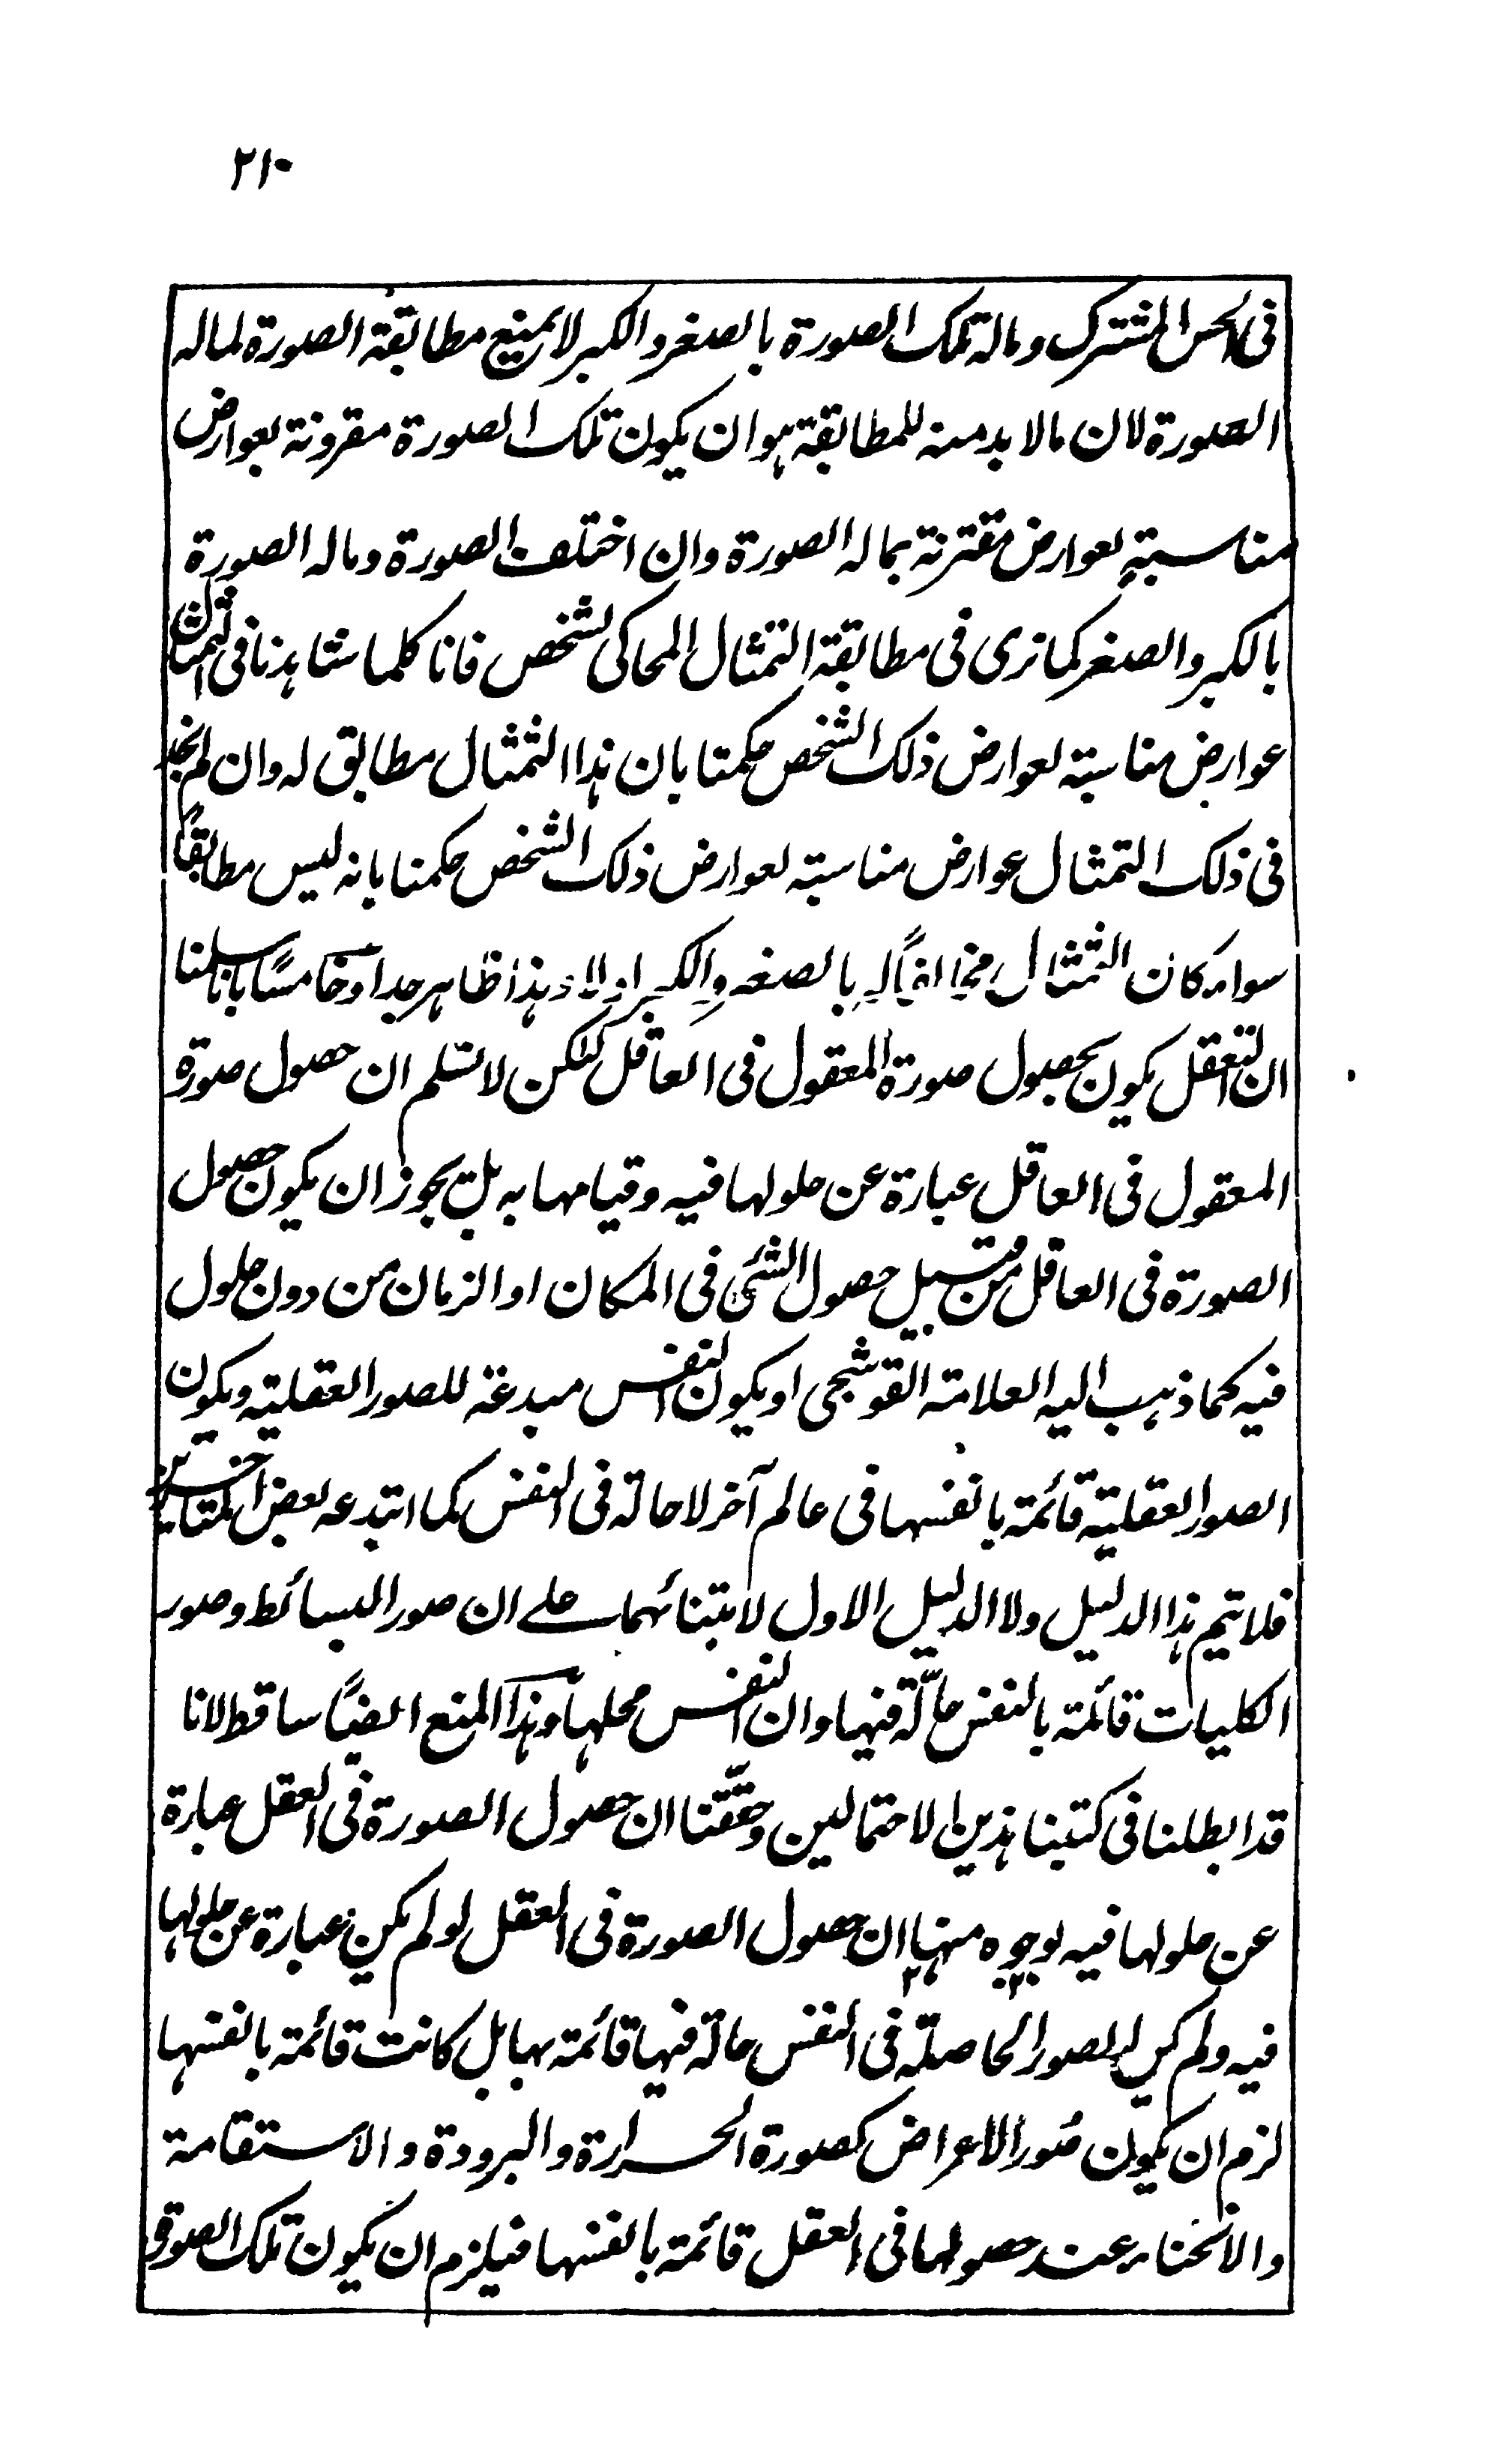 ٢١٠
فى الحس المشترك وماله تلك الصورة بالصغر والكبر لا يمنع مطابقة الصورة لماله
الصورة لان مالا بد منه للمطابقة هو ان يكون تلك الصورة مقرونة بعوارض
مناسبة لعوارض مقترنة بماله الصورة وان اختلف الصورة وماله الصورة
بالكبر والصغر كما نرى فى مطابقة التمثال المحاكى لشخص فانا كلما شاهدنا فى التمثال
عوارض مناسبة لعوارض ذلك الشخص حكمنا بان هذا التمثال مطابق له وان لم نجد
فى ذلك التمثال عوارض مناسبة لعوارض ذلك الشخص حكمنا بانه ليس مطابقًا
سواء كان التمثال مخالفًا له بالصغر والكبر او لا وهذا ظاهر جدا وخامسًا بانا سلمنا
ان التعقل يكون بحصول صورة المعقول فى العاقل لكن لا نسلم ان حصول صورة
المعقول فى العاقل عبارة عن حلولها فيه وقيامها به بل يجوز ان يكون حصول
الصورة فى العاقل من قبيل حصول الشئ فى المكان او الزمان من دون حلول
فيه كما ذهب اليه العلامة القوشجى او يكون النفس مبدعة للصور العقلية ويكون
الصور العقلية قائمة بانفسها فى عالم آخر لا حالة فى النفس كما ابتدعه بعض المتاخرين
فلا يتم هذا الدليل ولا الدليل الاول لابتنائهما على ان صور البسائط وصور
الكليات قائمة بالنفس حالّة فيها وان النفس محلها وهذا المنع ايضًا ساقط لانا
قد ابطلنا فى كتبنا هذين الاحتمالين وحققّنا ان حصول الصورة فى العقل عبارة
عن حلولها فيه بوجوه منها ان حصول الصورة فى العقل لو لم يكن عبارة عن حلولها
فيه ولم يكن الصور الحاصلة فى النفس حالة فيها قائمة بها بل كانت قائمة بانفسها
لزم ان يكون صُور الاعراض كصورة الحرارة والبرودة والاستقامة
والانحناء عند حصولها فى العقل قائمة بانفسها فيلزم ان يكون تلك الصور